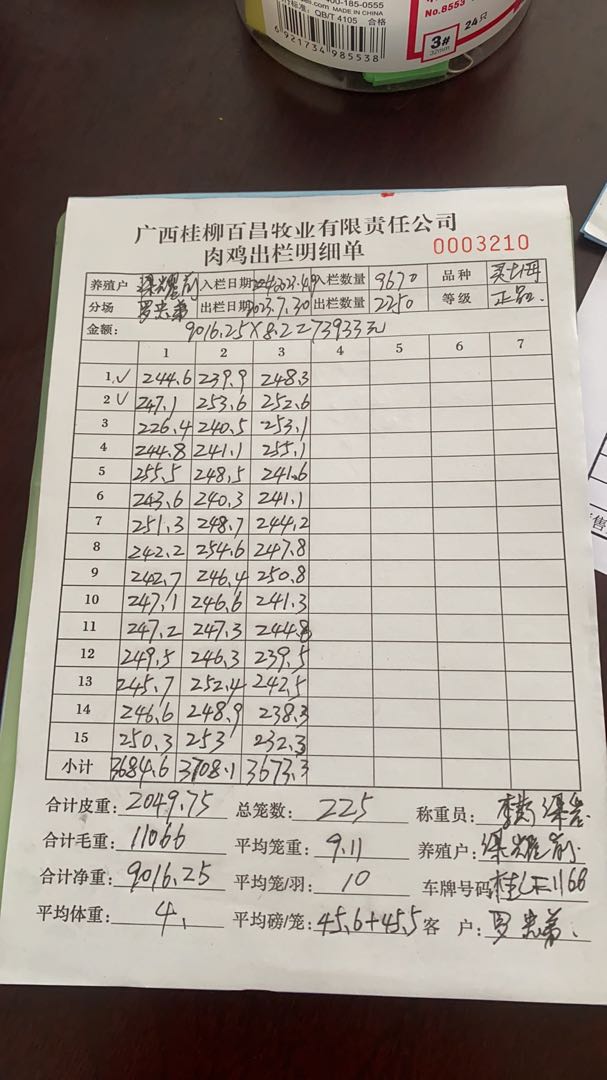 00-185-0555
标准: QB/T 4105 合格
MADE IN CHINA
6 921734 985538
No.8553
24只
3#
32mm
广西桂柳百昌牧业有限责任公司
肉鸡出栏明细单 0003210
养殖户 梁耀前 入栏日期 入栏数量 9670 品种
分场 罗忠弟 出栏日期 2023.7.30 出栏数量 2250 等级 正品.
金额: 9016.25×8.2=73933元
1 2 3 4 5 6 7
1.✓ 244.6 239.9 248.3
2 ✓ 247.1 253.6 252.6
3 226.4 240.5 253.1
4 244.8 241.1 255.1
5 255.5 248.5 241.6
6 243.6 240.3 241.1
7 251.3 248.7 244.2
8 242.2 254.6 247.8
9 242.7 246.4 250.8
10 247.1 246.6 241.3
11 247.2 247.3 244.8
12 249.5 246.3 239.5
13 245.7 252.4 242.5
14 246.6 248.9 238.3
15 250.3 253 232.3
小计 3684.6 3708.1 3673.3
合计皮重: 2049.75 总笼数: 225 称重员:
合计毛重: 11066 平均笼重: 9.11 养殖户: 梁耀前
合计净重: 9016.25 平均笼/羽: 10 车牌号码
平均体重: 4. 平均磅/笼: 45.6+45.5 客 户: 罗忠弟.
售